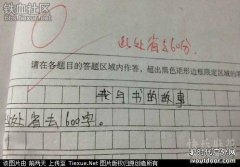 铁血社区
tiexue.net
此处省去60分.
请在各题目的答题区域内作答,超出黑色矩形边框限定区域的答
我与书的故事
此处省去600字。
本图片由 前两天 上传至 Tiexue.Net 图片版权归原创者所有